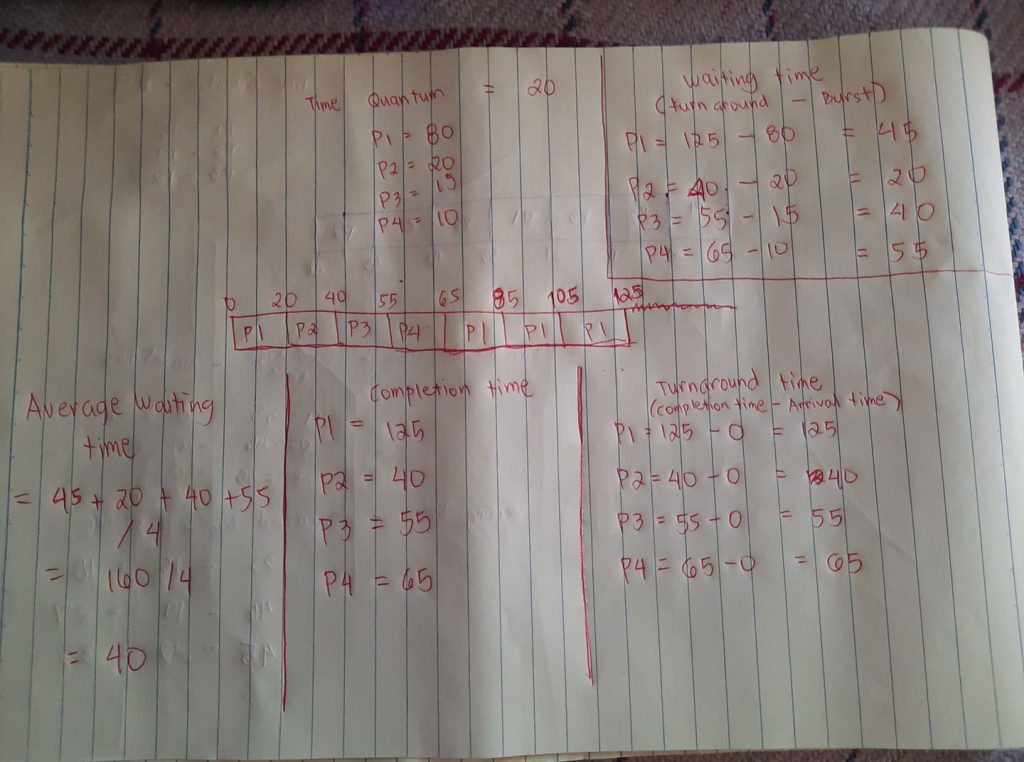 Time Quantum = 20
P1 = 80
P2 = 20
P3 = 15
P4 = 10
Waiting time
(turn around - Burst)
P1 = 125 - 80 = 45
P2 = 40 - 20 = 20
P3 = 55 - 15 = 40
P4 = 65 - 10 = 55
0 20 40 55 65 85 105 125
P1 P2 P3 P4 P1 P1 P1
Average waiting
time
= 45 + 20 + 40 + 55
/ 4
= 160 / 4
= 40
Completion time
P1 = 125
P2 = 40
P3 = 55
P4 = 65
Turnground time
(completion time - Arrival time)
P1 = 125 - 0 = 125
P2 = 40 - 0 = 40
P3 = 55 - 0 = 55
P4 = 65 - 0 = 65